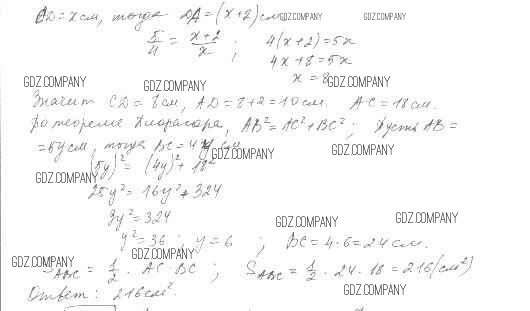 CD = x см, тогда DA = (x+2) см GDZ.COMPANY GDZ.COMPANY
5/4 = (x+2)/x ; 4(x+2) = 5x
4x + 8 = 5x
x = 8
GDZ.COMPANY GDZ.COMPANY GDZ.COMPANY
Значит CD = 8 см, AD = 8+2 = 10 см. AC = 18 см.
По теореме Пифагора, AB² = AC² + BC² ; Пусть AB =
= 5y см, тогда BC = 4y см GDZ.COMPANY GDZ.COMPANY
(5y)² = (4y)² + 18²
GDZ.COMPANY
25y² = 16y² + 324
9y² = 324
GDZ.COMPANY GDZ.COMPANY
y² = 36 ; y = 6 ; BC = 4·6 = 24 см.
GDZ.COMPANY GDZ.COMPANY
S ABC = 1/2 · AC · BC ; S ABC = 1/2 · 24 · 18 = 216 (см²)
Ответ: 216 см².
GDZ.COMPANY